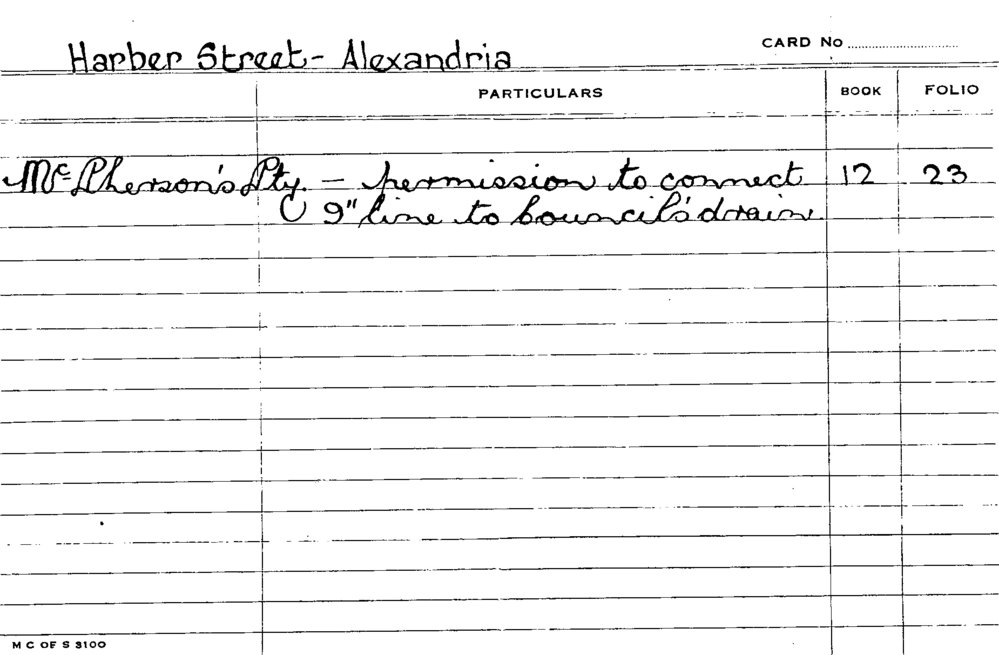 Harber Street - Alexandria
CARD No
PARTICULARS BOOK FOLIO
McPherson's Pty. - permission to connect 12 23
9" line to Council's drain
M C OF S 3100